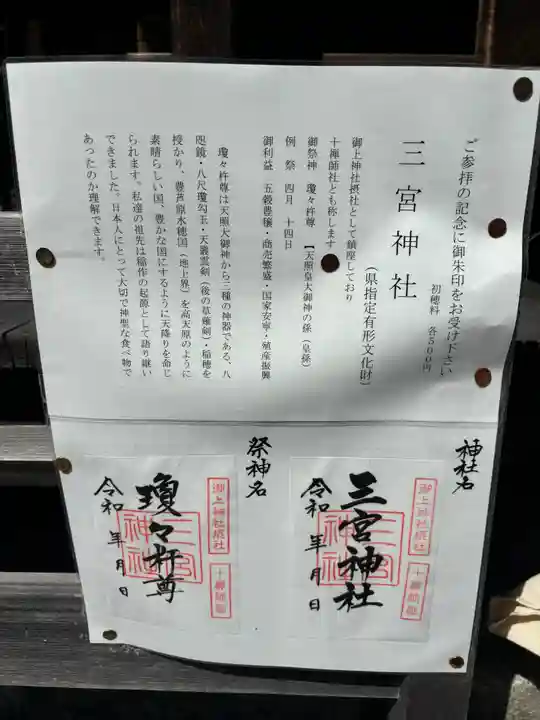 ご参拝の記念に御朱印をお受け下さい
初穂料 各500円
三宮神社
(県指定有形文化財)
御上神社摂社として鎮座しており
十禅師社とも称します
御祭神 瓊々杵尊 【天照皇大御神の孫(皇孫)
例祭 四月 十四日
御利益 五穀豊穣・商売繁盛・国家安寧・殖産振興
瓊々杵尊は天照大御神から三種の神器である、八
咫鏡・八尺瓊勾玉・天叢雲剣(後の草薙剣)・稲穂を
授かり、豊芦原本穂国(地上界)を高天原のように
素晴らしい国、豊かな国にするように天降りを命じ
られます。私達の祖先は稲作の起源として語り継い
できました。日本人にとって大切で神聖な食べ物で
あったのか理解できます。
神社名
御上神社摂社
十禅師社
三宮神社
三宮神社
令和 年 月 日
祭神名
御上神社摂社
十禅師社
瓊々杵尊
三宮神社
令和 年 月 日